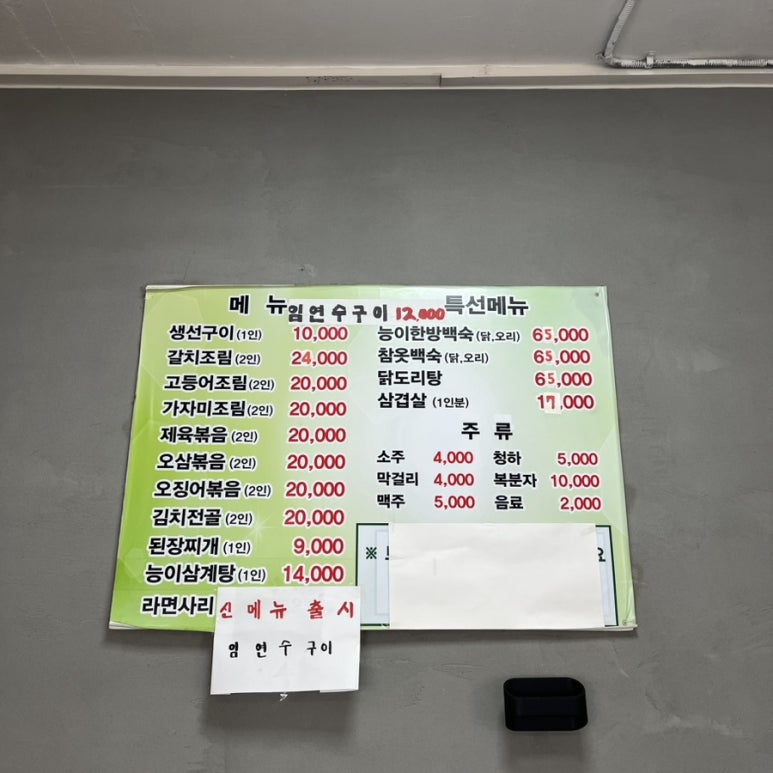 메 뉴
임연수구이 12,000
생선구이(1인) 10,000
갈치조림(2인) 24,000
고등어조림(2인) 20,000
가자미조림(2인) 20,000
제육볶음(2인) 20,000
오삼볶음(2인) 20,000
오징어볶음(2인) 20,000
김치전골(2인) 20,000
된장찌개(1인) 9,000
능이삼계탕(1인) 14,000
라면사리
신 메뉴 출시
임 연 수 구이
특선메뉴
능이한방백숙(닭,오리) 65,000
참옻백숙(닭,오리) 65,000
닭도리탕 65,000
삼겹살 (1인분) 17,000
주 류
소주 4,000 청하 5,000
막걸리 4,000 복분자 10,000
맥주 5,000 음료 2,000
※